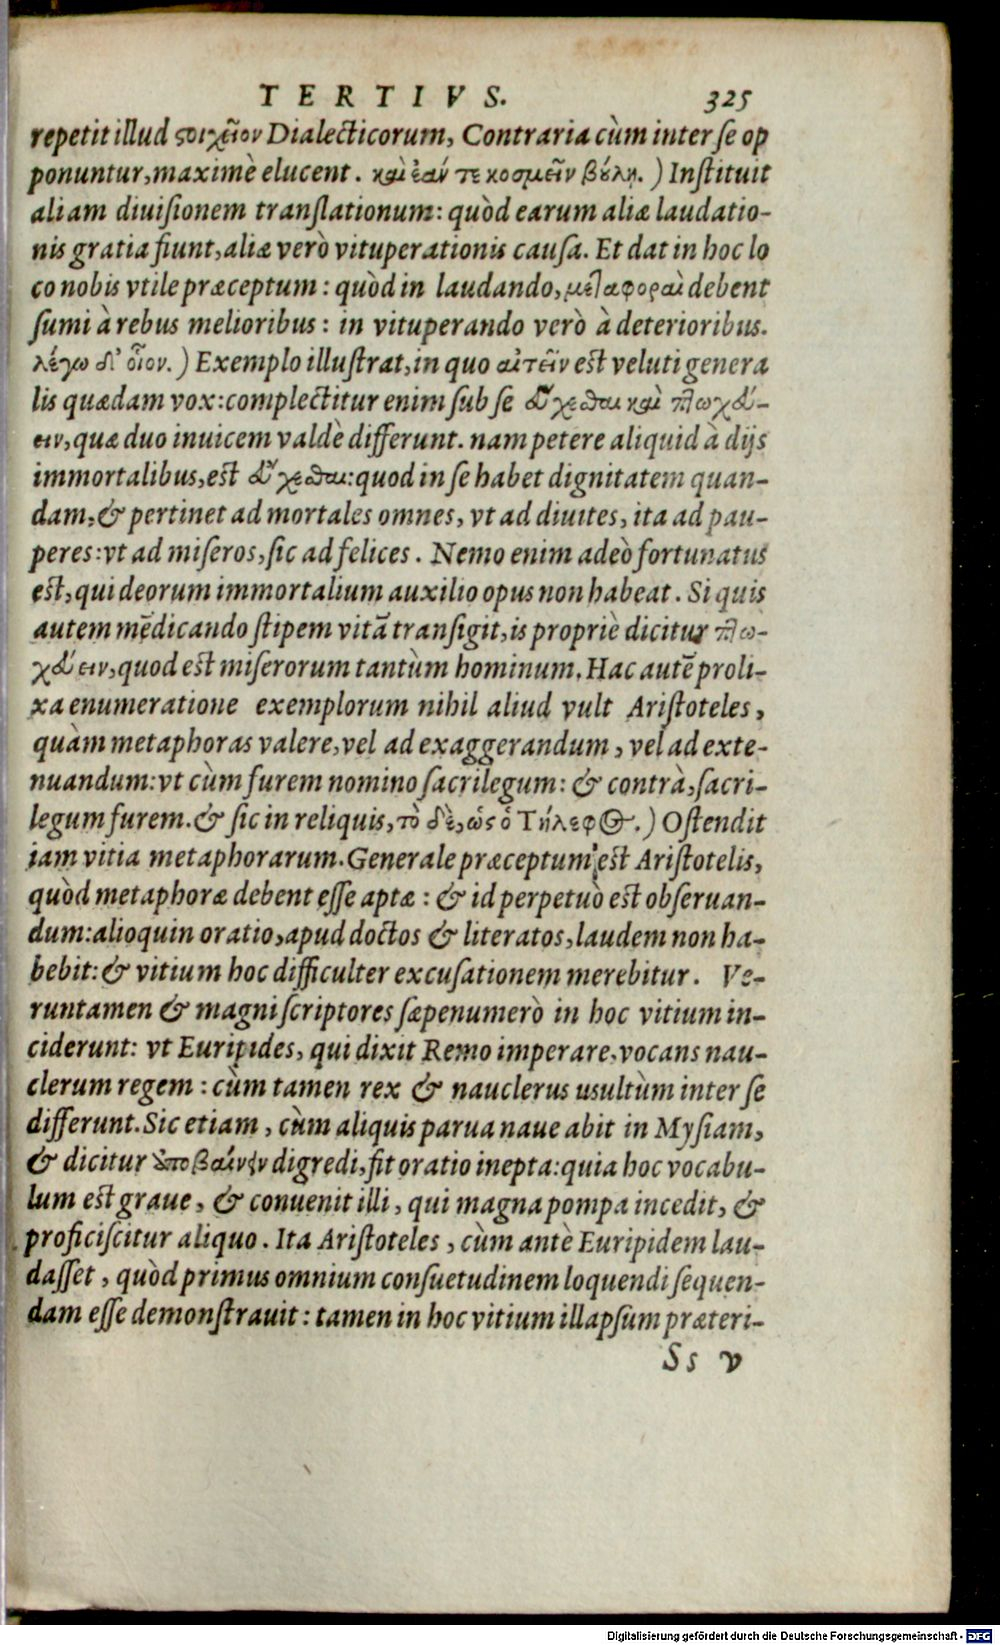 TERTIVS. 325
repetit illud ϛοιχεῖον Dialecticorum, Contraria cùm inter se op
ponuntur, maximè elucent. καὶ ἐάν τε κοσμεῖν βύλη.) Instituit
aliam diuisionem translationum: quòd earum aliæ laudatio-
nis gratia fiunt, aliæ verò vituperationis causa. Et dat in hoc lo
co nobis vtile præceptum: quòd in laudando, μεταφοραὶ debent
sumi à rebus melioribus: in vituperando verò à deterioribus.
λέγω δ' οἷον.) Exemplo illustrat, in quo αἰτεῖν est veluti genera
lis quædam vox: complectitur enim sub se εὔχεσθαι καὶ πτωχεύ-
ειν, quæ duo inuicem valdè differunt. nam petere aliquid à dijs
immortalibus, est εὔχεσθαι: quod in se habet dignitatem quan-
dam, & pertinet ad mortales omnes, vt ad diuites, ita ad pau-
peres: vt ad miseros, sic ad felices. Nemo enim adeò fortunatus
est, qui deorum immortalium auxilio opus non habeat. Si quis
autem mēdicando stipem vitā transigit, is propriè dicitur πτω-
χεύειν, quod est miserorum tantùm hominum. Hac autē proli-
xa enumeratione exemplorum nihil aliud vult Aristoteles,
quàm metaphoras valere, vel ad exaggerandum, vel ad exte-
nuandum: vt cùm furem nomino sacrilegum: & contrà, sacri-
legum furem. & sic in reliquis, τὸ δὲ, ὡς ὁ Τήλεφος.) Ostendit
iam vitia metaphorarum. Generale præceptum est Aristotelis,
quòd metaphoræ debent esse aptæ: & id perpetuò est obseruan-
dum: alioquin oratio, apud doctos & literatos, laudem non ha-
bebit: & vitium hoc difficulter excusationem merebitur. Ve-
runtamen & magni scriptores sæpenumerò in hoc vitium in-
ciderunt: vt Euripides, qui dixit Remo imperare, vocans nau-
clerum regem: cùm tamen rex & nauclerus usultùm inter se
differunt. Sic etiam, cùm aliquis parua naue abit in Mysiam,
& dicitur ὑποβαίνειν digredi, fit oratio inepta: quia hoc vocabu-
lum est graue, & conuenit illi, qui magna pompa incedit, &
proficiscitur aliquo. Ita Aristoteles, cùm antè Euripidem lau-
dasset, quòd primus omnium consuetudinem loquendi sequen-
dam esse demonstrauit: tamen in hoc vitium illapsum præteri-
Ss v
Digitalisierung gefördert durch die Deutsche Forschungsgemeinschaft - DFG